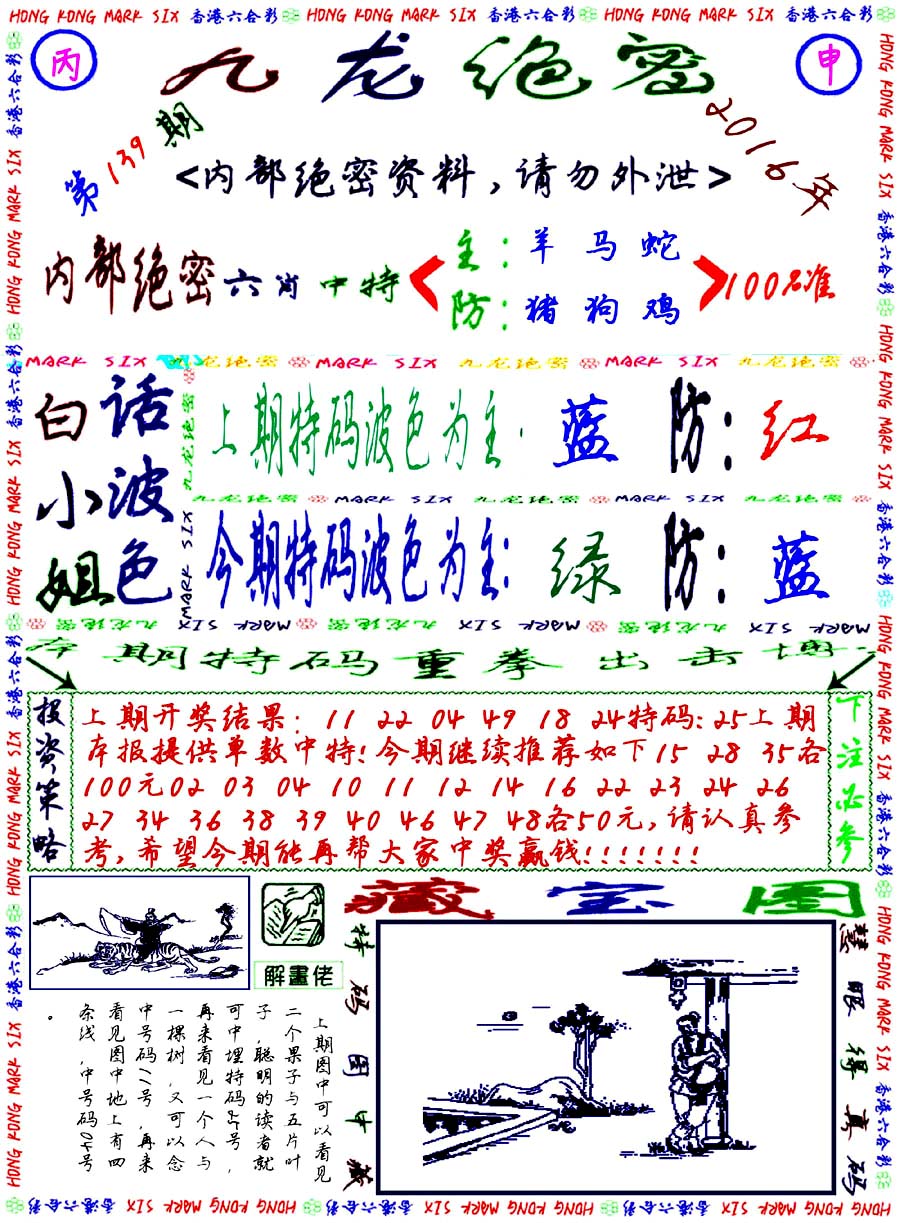 HONG KONG MARK SIX 香港六合彩 HONG KONG MARK SIX 香港六合彩 HONG KONG MARK SIX 香港六合彩
丙
九龙绝密
申
第139期
2016年
<内部绝密资料,请勿外泄>
内部绝密六肖中特
主:羊马蛇
防:猪狗鸡
100%准
MARK SIX 九龙绝密 MARK SIX 九龙绝密 MARK SIX 九龙绝密
白话
小波
姐色
上期特码波色为主: 蓝 防: 红
九龙绝密 MARK SIX 九龙绝密 MARK SIX 九龙绝密
今期特码波色为主: 绿 防: 蓝
九龙绝密 MARK SIX 九龙绝密 MARK SIX 九龙绝密 MARK SIX
本期特码重拳出击博
投资策略
上期开奖结果: 11 22 04 49 18 24特码:25上期
本报提供单数中特!今期继续推荐如下15 28 35各
100元02 03 04 10 11 12 14 16 22 23 24 26
27 34 36 38 39 40 46 47 48各50元,请认真参
考,希望今期能再帮大家中奖赢钱!!!!!!!
下注必参
藏宝图
解畫佬
上期图中可以看见
二个果子与五片叶
子,聪明的读者就
可中埋特码25号,
再来看见一个人与
一棵树,又可以念
中号码11号,再来
看见图中地上有四
条线,中号码04号
。
特码图中藏
慧眼得真码
HONG KONG MARK SIX 香港六合彩 HONG KONG MARK SIX 香港六合彩 HONG KONG MARK SIX 香港六合彩